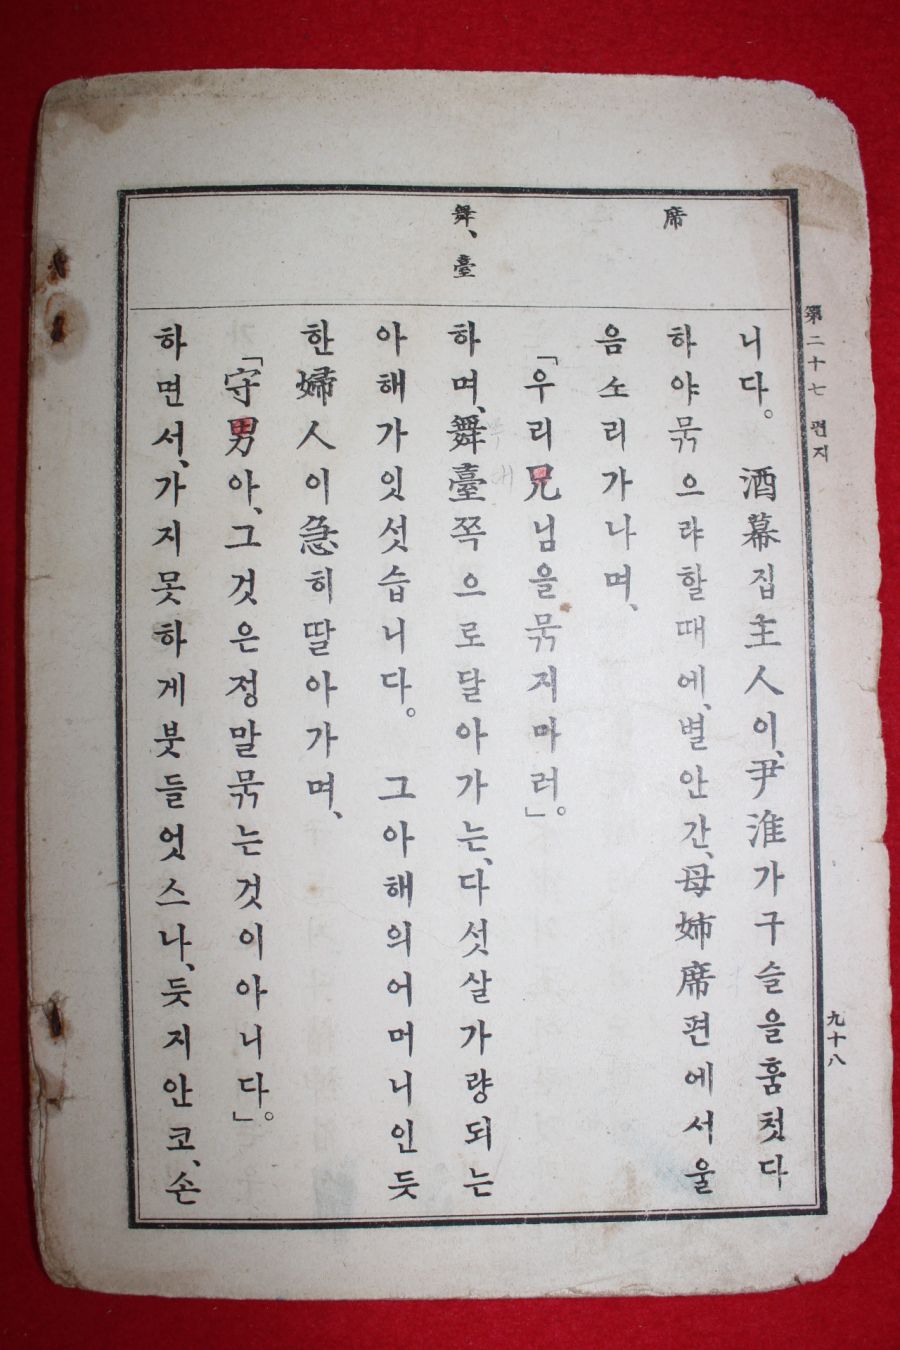 第二十七 편지
九十八
席
舞、臺
니다。 酒幕집主人이、尹淮가구슬을훔첫다
하야묶으랴할때에、별안간、母姉席편에서울
음소리가나며、
「우리兄님을묶지마러」。
하며、舞臺쪽으로달아가는、다섯살가량되는
아해가잇섯습니다。 그아해의어머니인듯
한婦人이急히딸아가며、
「守男아、그것은정말묶는것이아니다」。
하면서、가지못하게붓들엇스나、듯지안코、손